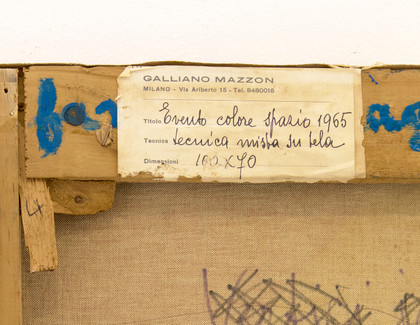 GALLIANO MAZZON
MILANO - Via Ariberto 15 - Tel. 8480016
Titolo Evento colore spazio 1965
Tecnica tecnica mista su tela
Dimensioni 100x70
4